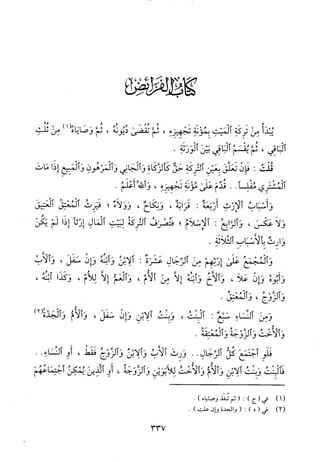 كتاب الفرائض
يُبْدَأُ مِنْ تَرِكَةِ ٱلْمَيِّتِ بِمُؤْنَةِ تَجْهِيزِهِ ، ثُمَّ تُقْضَىٰ دُيُونُهُ ، ثُمَّ وَصَايَاهُ(١) مِنْ ثُلُثِ
ٱلْبَاقِي ، ثُمَّ يُقْسَمُ ٱلْبَاقِي بَيْنَ ٱلْوَرَثَةِ .
قُلْتُ : فَإِنْ تَعَلَّقَ بِعَيْنِ ٱلتَّرِكَةِ حَقٌّ كَٱلزَّكَاةِ وَٱلْجَانِي وَٱلْمَرْهُونِ وَٱلْمَبِيعِ إِذَا مَاتَ
ٱلْمُشْتَرِي مُفْلِساً .. قُدِّمَ عَلَىٰ مُؤْنَةِ تَجْهِيزِهِ ، وَٱللهُ أَعْلَمُ .
وَأَسْبَابُ ٱلْإِرْثِ أَرْبَعَةٌ : قَرَابَةٌ ، وَنِكَاحٌ ، وَوَلَاءٌ ؛ فَيَرِثُ ٱلْمُعْتِقُ ٱلْعَتِيقَ
وَلَا عَكْسَ ، وَٱلرَّابِعُ : ٱلْإِسْلَامُ ؛ فَتُصْرَفُ ٱلتَّرِكَةُ لِبَيْتِ ٱلْمَالِ إِرْثاً إِذَا لَمْ يَكُنْ
وَارِثٌ بِٱلْأَسْبَابِ ٱلثَّلَاثَةِ .
وَٱلْمُجْمَعُ عَلَىٰ إِرْثِهِمْ مِنَ ٱلرِّجَالِ عَشَرَةٌ : ٱلِٱبْنُ وَٱبْنُهُ وَإِنْ سَفَلَ ، وَٱلْأَبُ
وَأَبُوهُ وَإِنْ عَلَا ، وَٱلْأَخُ وَٱبْنُهُ إِلَّا مِنَ ٱلْأُمِّ ، وَٱلْعَمُّ إِلَّا لِلْأُمِّ ، وَكَذَا ٱبْنُهُ ،
وَٱلزَّوْجُ ، وَٱلْمُعْتِقُ .
وَمِنَ ٱلنِّسَاءِ سَبْعٌ : ٱلْبِنْتُ ، وَبِنْتُ ٱلِٱبْنِ وَإِنْ سَفَلَ ، وَٱلْأُمُّ وَٱلْجَدَّةُ(٢)
وَٱلْأُخْتُ وَٱلزَّوْجَةُ وَٱلْمُعْتِقَةُ .
فَلَوِ ٱجْتَمَعَ كُلُّ ٱلرِّجَالِ .. وَرِثَ ٱلْأَبُ وَٱلِٱبْنُ وَٱلزَّوْجُ فَقَطْ ، أَوِ ٱلنِّسَاءِ ..
فَٱلْبِنْتُ وَبِنْتُ ٱلِٱبْنِ وَٱلْأُمُّ وَٱلْأُخْتُ لِلْأَبَوَيْنِ وَٱلزَّوْجَةُ ، أَوِ ٱلَّذِينَ يُمْكِنُ ٱجْتِمَاعُهُمْ
(١) في ( ج ) : ( ثم تنفذ وصاياه ) .
(٢) في ( د ) : ( والجدة وإن علت ) .
٣٣٧